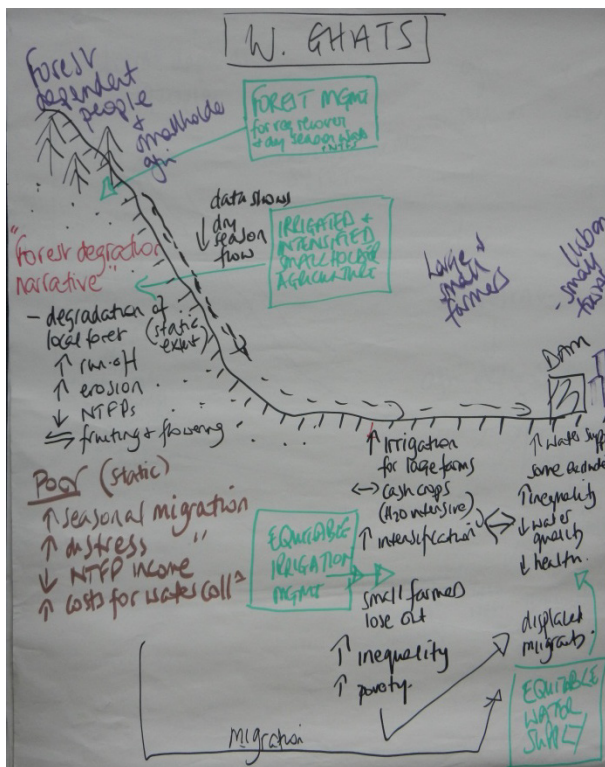 W. GHATS
Forest
dependent
people
&
smallholder
FOREST MGMT
for
& dry season
data shows
↓ dry
season
flow
IRRIGATED &
INTENSIFIED
SMALLHOLDER
AGRICULTURE
Large &
small
farmers
Urban
- small
"Forest degradation
narrative"
- degradation of
local forest (static
extent)
↑ run-off
↑ erosion
↓ NTFPs
⇋ fruiting & flowering
DAM
Poor (static)
↑ seasonal migration
↑ distress "
↓ NTFP income
↑ costs for water coll
EQUITABLE
IRRIGATION
MGMT
↑ irrigation
for large farms
↔ cash crops
(H2O intensive)
↑ intensification
small farmers
lose out
↑ inequality
↑ poverty.
↑ water supp
some
↑ inequality
↓ water
quality
↓ health.
displaced
migrants
EQUITABLE
WATER
SUPPLY
migration